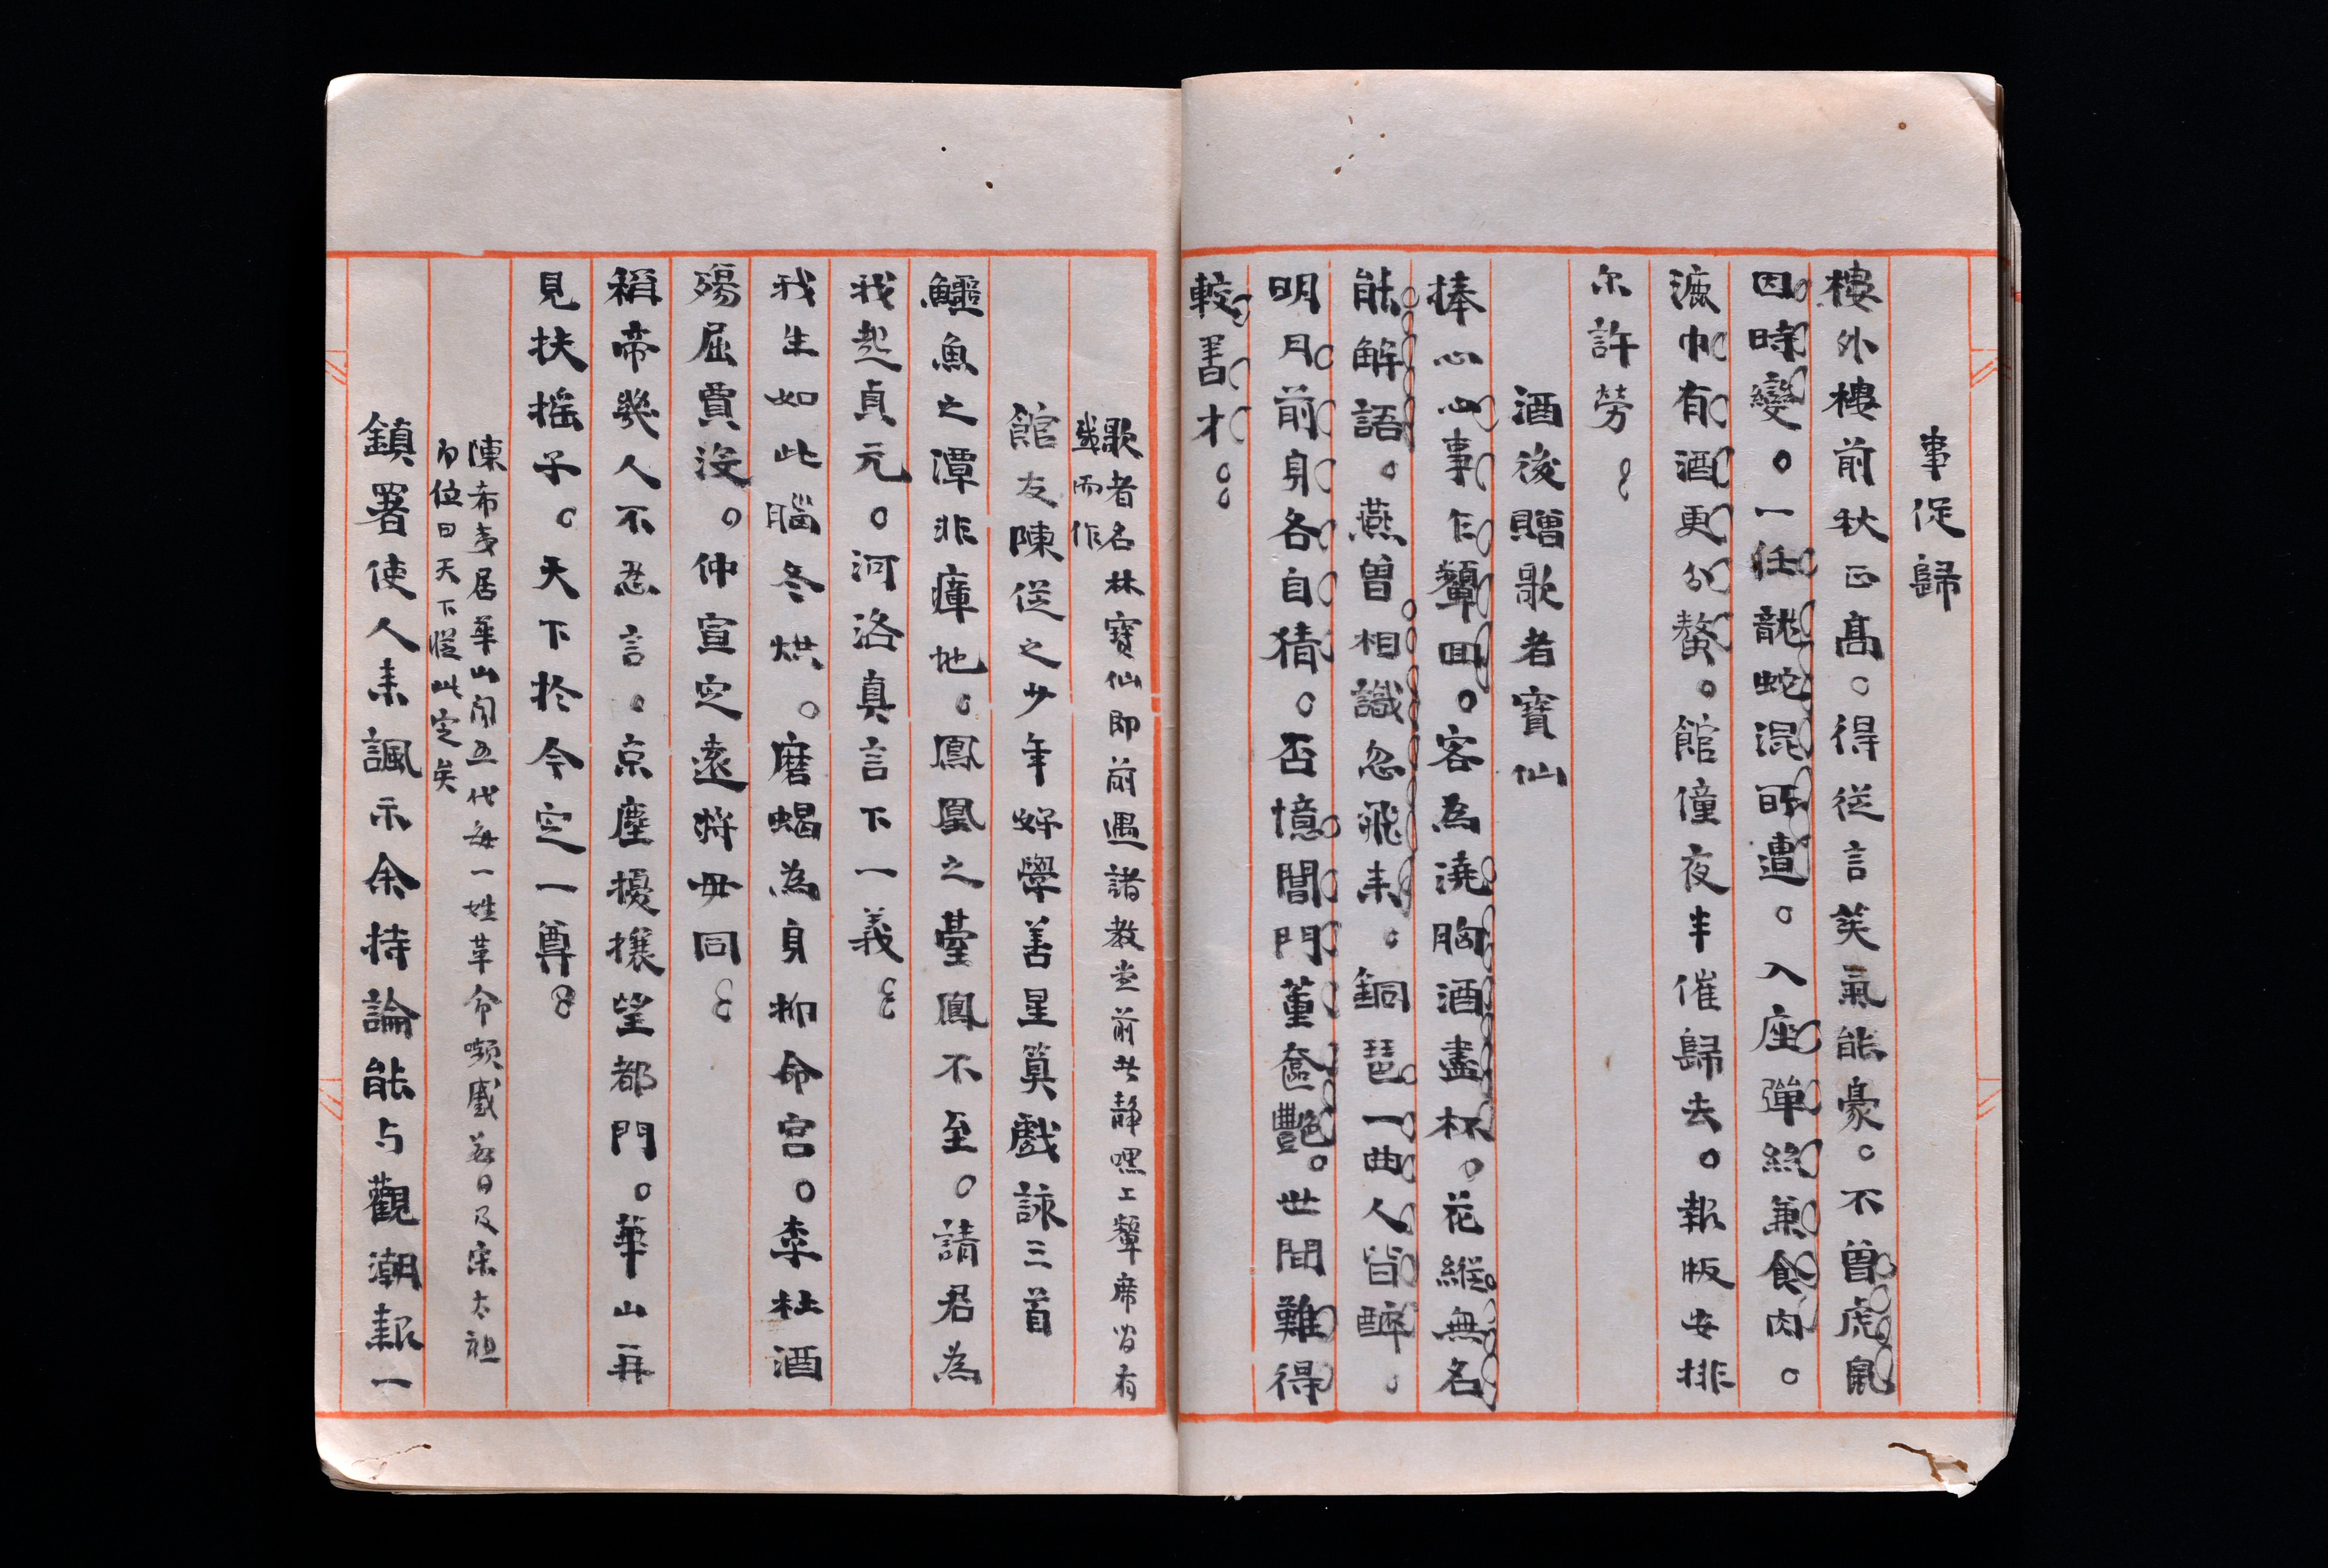 事促歸
樓外樓前秋正高。得從言笑氣能豪。不曾虎鼠
因時變。一任龍蛇混昨遭。入座彈絲兼食肉。
漉巾有酒更分螯。館僮夜半催歸去。報版安排
尔許勞。
酒後贈歌者寶仙
捧心心事乍顰回。客為澆胸酒盡杯。花縱無名
能解語。燕曾相識忽飛来。銅琶一曲人皆醉。
明月前身各自猜。否憶閶門董奩艷。世間難得
較書才。
歌者名林寶仙即前遇諸教坐前此靜嘿工顰席皆有
感而作
館友陳從之少年好學善星算戲詠三首
鱷魚之潭非瘴地。鳳凰之臺鳳不至。請君為
我起貞元。河洛真言下一義。
我生如此腦冬烘。磨蝎為身抑命宮。李杜酒
殤屈賈沒。仲宣定遠將毋同。
稱帝幾人不忍言。京塵擾攘望都門。華山再
見扶搖子。天下於今定一尊。
陳希夷居華山聞五代每一姓革命嚬蹙數日及宋太祖
即位曰天下從此定矣
鎮署使人来諷示余持論能与觀潮報一